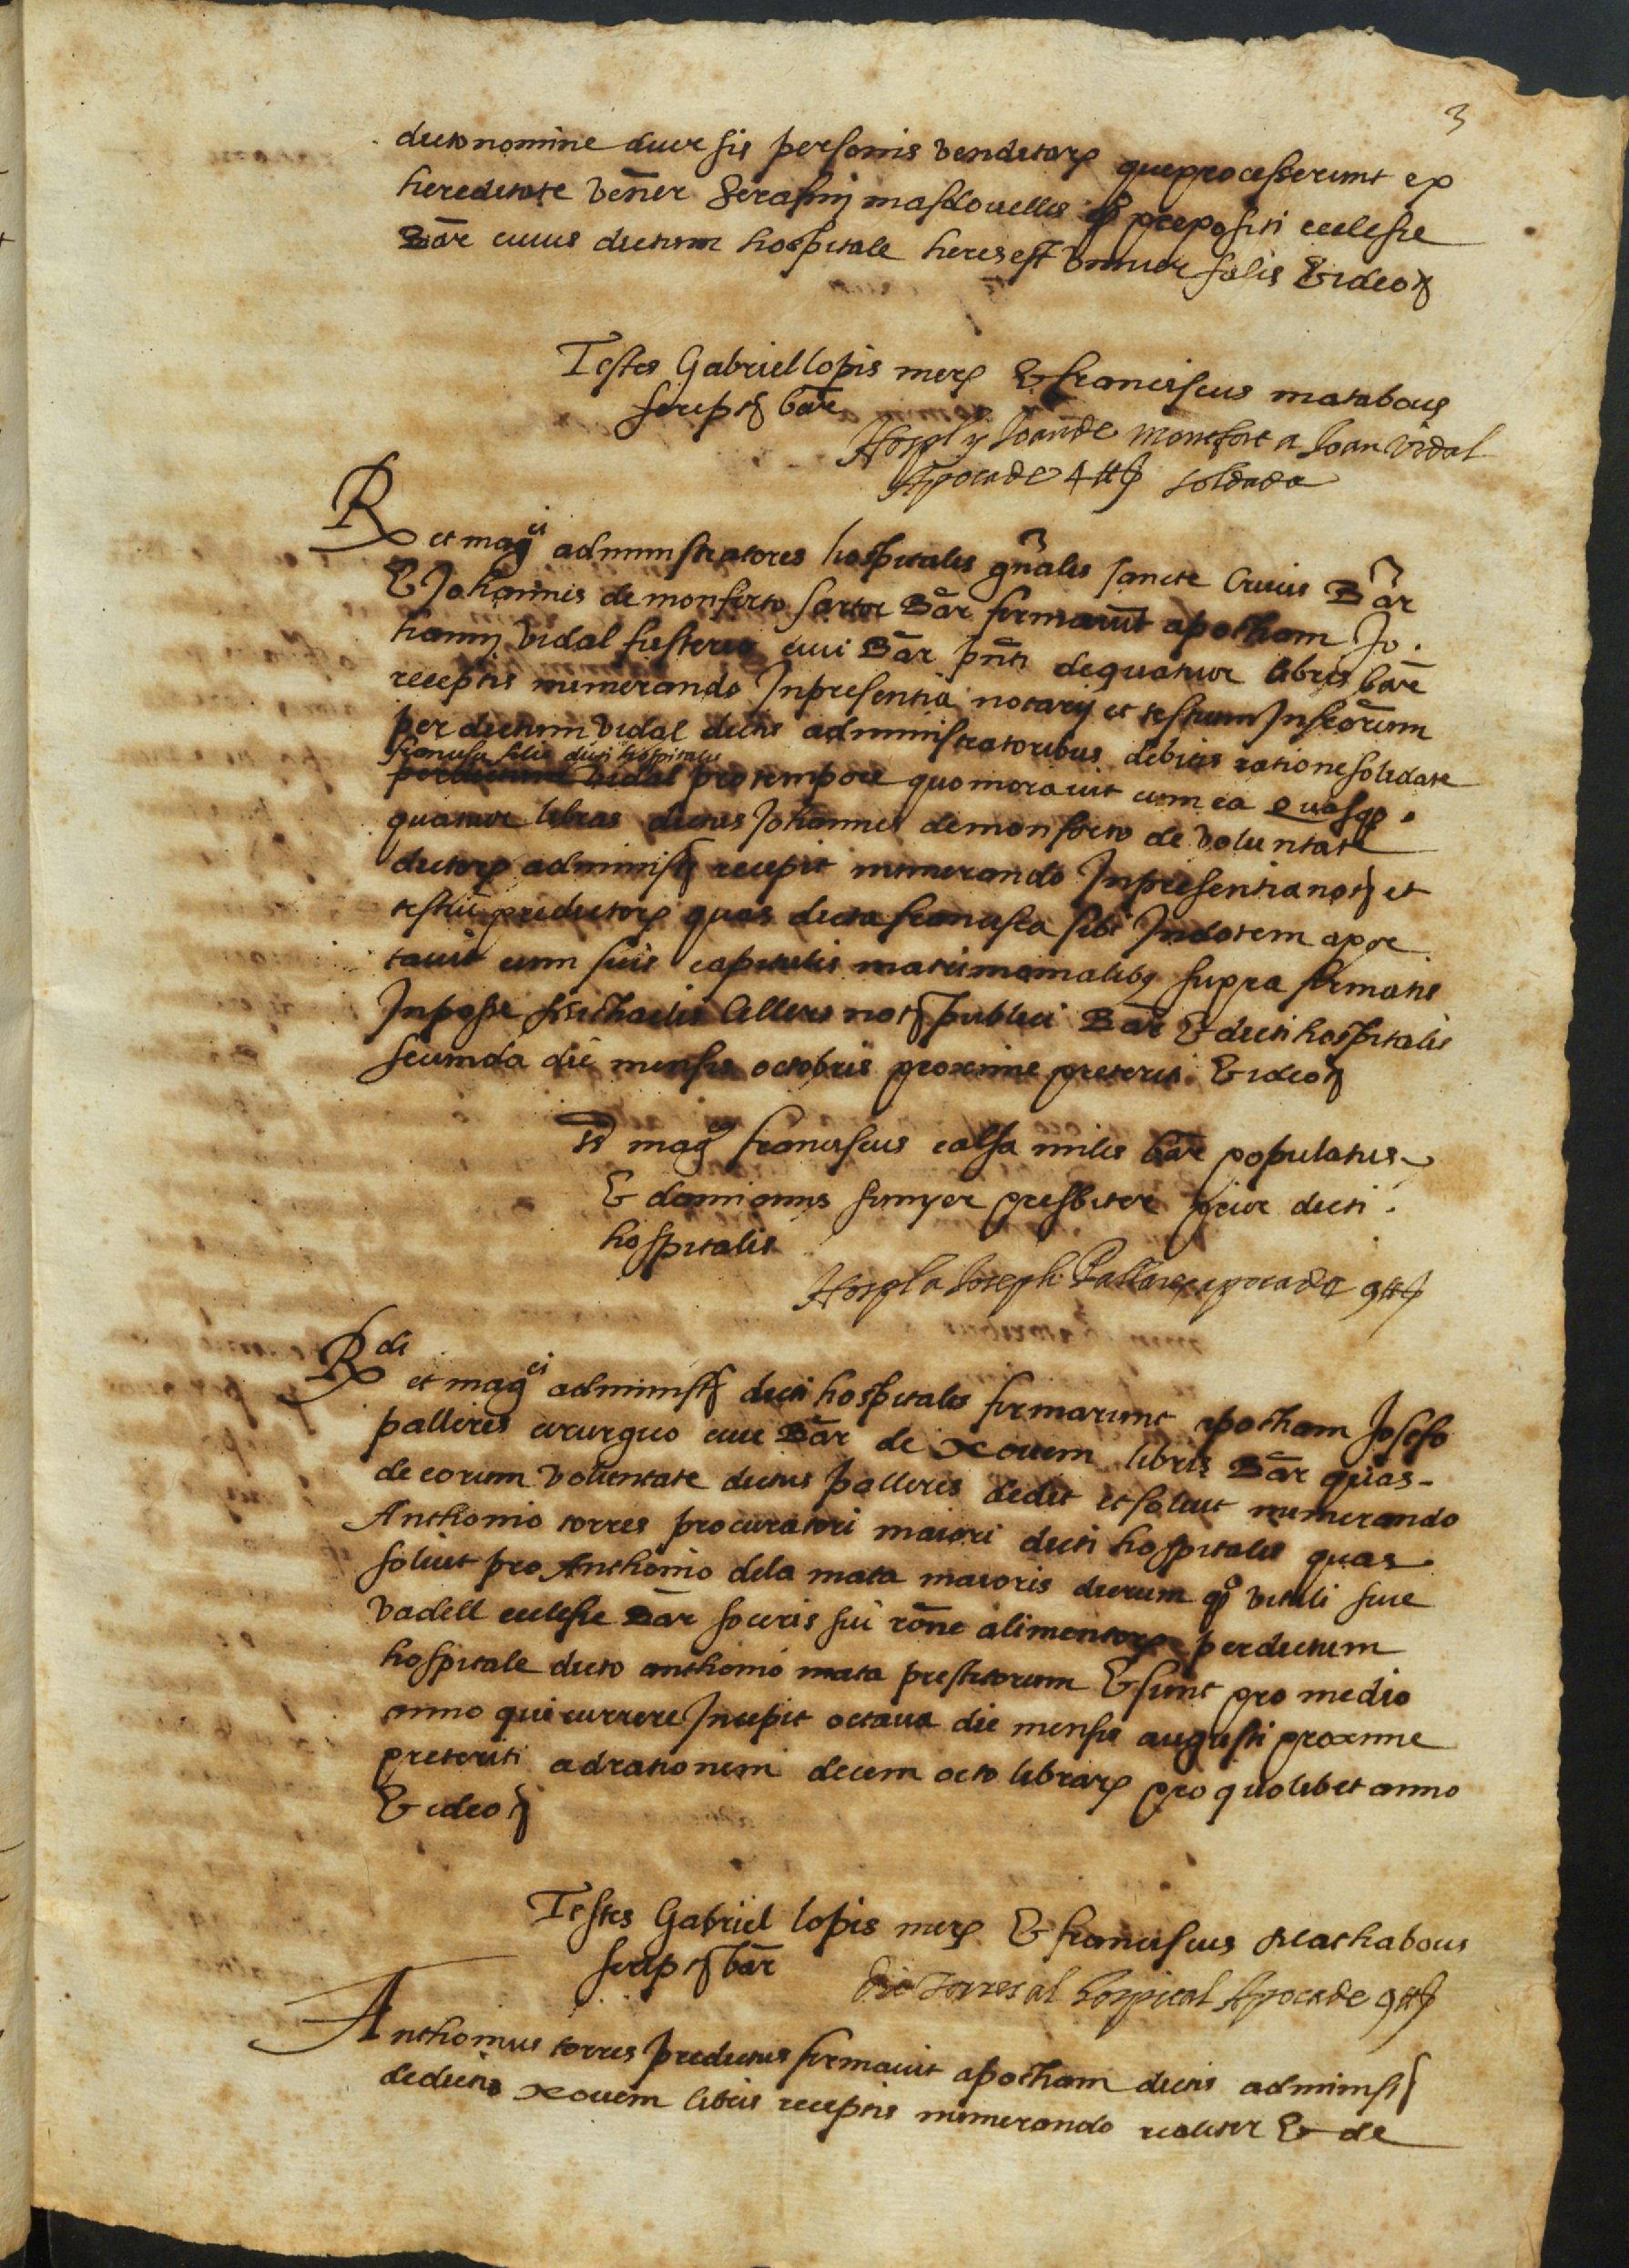 3
dicto nomine diversis personis venditarū que processerunt ex
hereditate vener Serafini masdovelles qº prepositi ecclesie
Bar cuius dictum hospitale heres est universalis Et ideo
Testes Gabriel lopis merꝭ Et franciscus matabous
scriptꝭ bar
Hospl y Joan de Montfort a Joan Vidal
Apoca de 4 ħꝭ soldada
R et magci administratores hospitalis gnalis sancte Crucis Bar
Et Johannis de monforto sartor Bar firmarūt apocham Jo.
hanni vidal fusterio civi Bar pnti de quatuor libris bare
receptis numerando In presentia notarij et testium Infrorum
per dictum vidal dictis administratoribus debitis ratione solidate
francisca filie dicti hospitalis
per dictum vidal pro tempore quo moravit cum ea Quasqꝫ.
quatuor libras dictus Johannes de monforto de voluntate
dictorꝝ administꝭ recepit numerando In presentia notꝭ et
testiū predictorꝝ quas dicta francisca sibi In dotem apor
tavit cum suis capitulis matrimonialibꝫ supra firmatis
In posse Michaelis Cellers notꝭ publici Bar Et dicti hospitalis
secunda die mensis octobris proxime preteriti Et ideo
Tꝭ magcus franciscus calsa miles bar populatus
Et damianus sunyer presbiter prior dicti.
hospitalis
Hospl a Joseph Pallares apoca de 9 ħꝭ
Rdi et magci administꝭ dicti hospitalis firmarunt apocham Josefo
palleres cirurgico civi Bar de novem libris Bar quas
de eorum voluntate dictus palleres dedit et solvit numerando
Anthonio torres procuratori maiori dicti hospitalis quas
solvit pro Anthonio de la mata maioris dierum qº vitali sive
vadell ecclesie Bar soceris sui rone alimentorꝝ per dictum
hospitale dicto anthonio mata prestitorum Et sunt pro medio
anno qui currere Incepit octava die mensis augusti proxime
preteriti ad rationem decem octo librarꝝ pro quolibet anno
Et ideo
Testes Gabriel lopis merꝭ Et franciscus Mathabous
scriptꝭ bar
Torres al hospital Apoca de 9 ħꝭ
Anthonius torres predictus firmavit apocham dictis administꝭ
de dictis novem libris receptis numerando realiter Et de